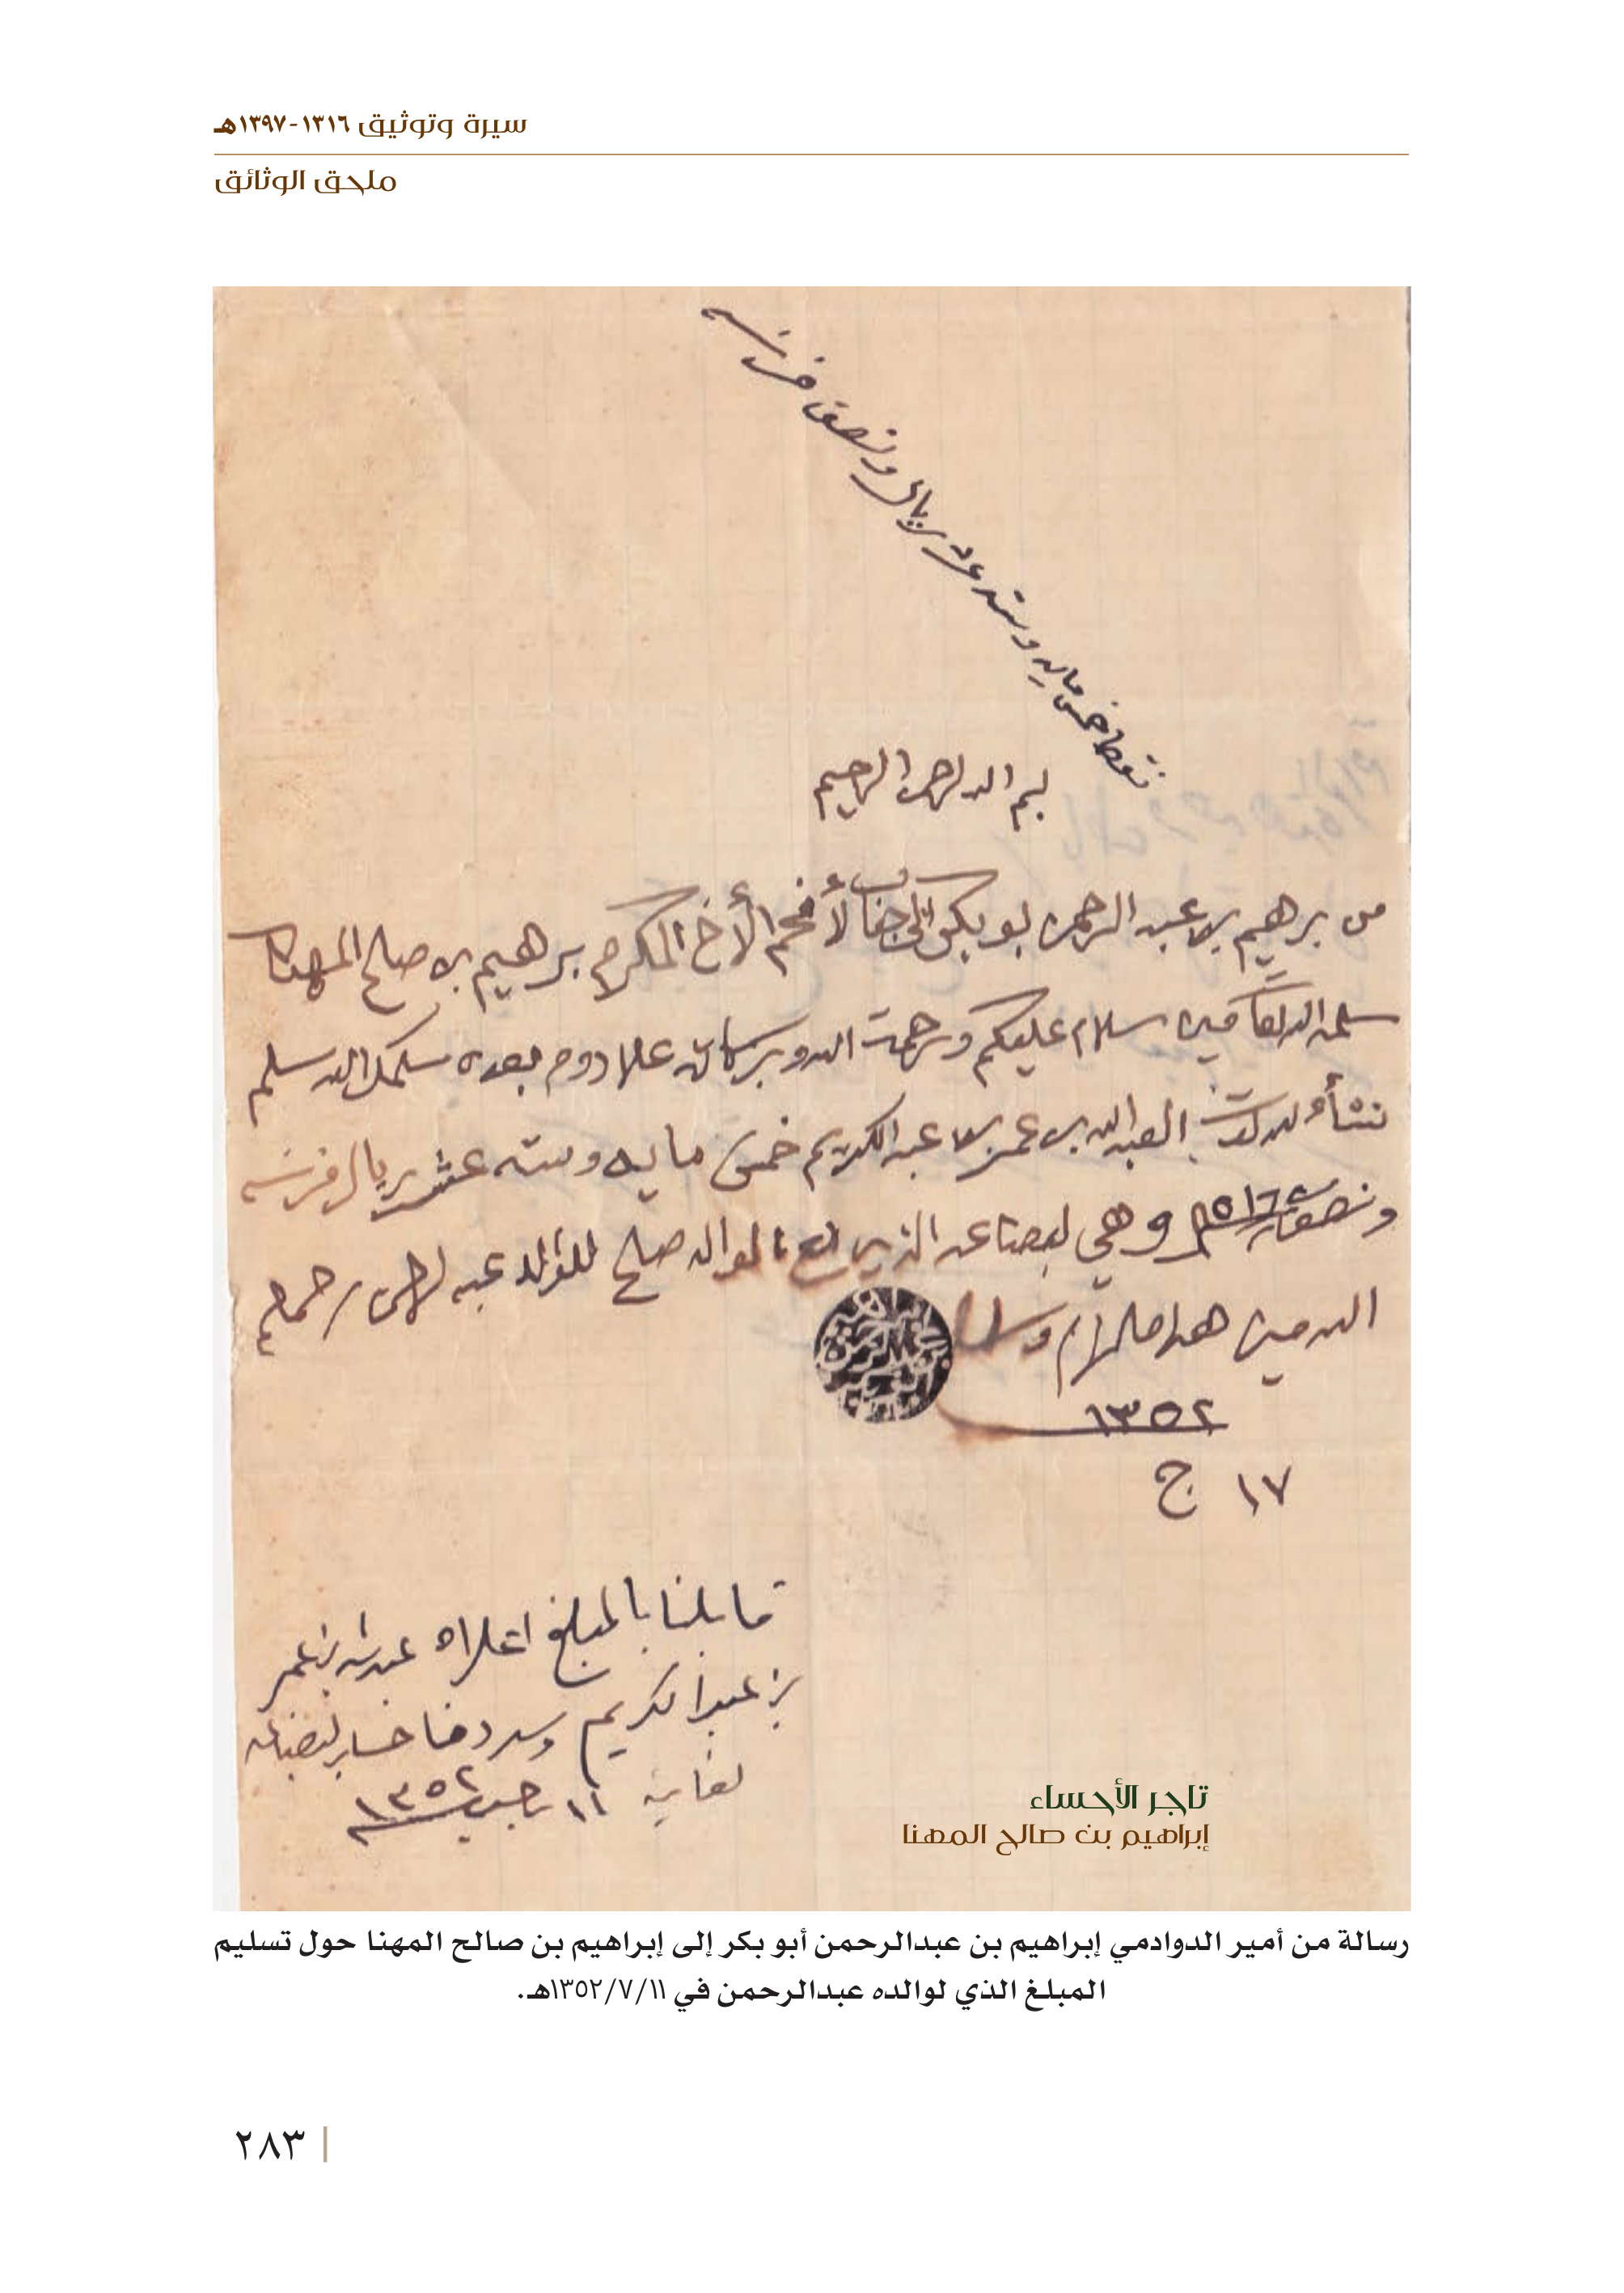 سيرة وتوثيق ١٣١٦-١٣٩٧هـ
ملحق الوثائق
خمس مايه وسته عشر ريال ونصف فرنسه
بسم الله الرحمن الرحيم
من برهيم بن عبد الرحمن بو بكر الى جناب الأفخم الأخ المكرم برهيم بن صالح المهنا
سلمه الله تعا مين سلام عليكم ورحمت الله وبركاته علا دوم بعده سلمك الله سلم
العبد الله بن عمر بن عبد الكريم خمس مايه وسته عشر ريال فرنسه
ونصف ٥١٦ وهي بضاعه الذي الوالد صالح للوالد عبد الرحمن رحمهم
الله مين هذا مالزم وسلام
١٣٥٢
١٧ ج
قابلنا بالمبلغ اعلاه عبدالله بن عمر
بن عبدالكريم وسددنا حساب البضاعه
لغاية ١١ رجب ١٣٥٢
تاجر الأحساء
إبراهيم بن صالح المهنا
رسالة من أمير الدوادمي إبراهيم بن عبدالرحمن أبو بكر إلى إبراهيم بن صالح المهنا حول تسليم
المبلغ الذي لوالده عبدالرحمن في ١٣٥٢/٧/١١هـ.
٢٨٣